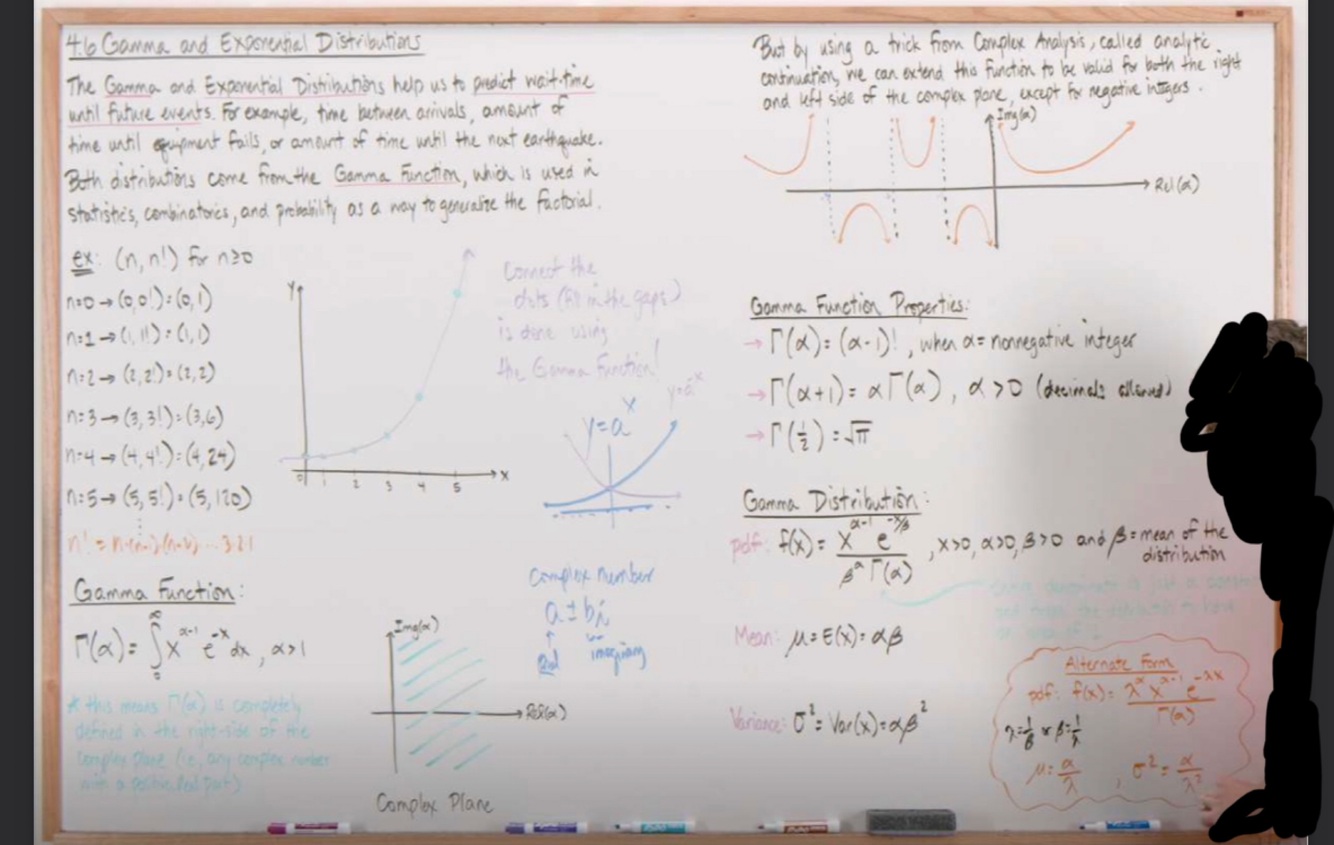 4.6 Gamma and Exponential Distributions
The Gamma and Exponential Distributions help us to predict wait-time
until future events. For example, time between arrivals, amount of
time until equipment fails, or amount of time until the next earthquake.
Both distributions come from the Gamma Function, which is used in
statistics, combinatorics, and probability as a way to generalize the factorial.
ex: (n, n!) for n≥0
n=0 → (0, 0!) = (0, 1)
n=1 → (1, 1!) = (1, 1)
n=2 → (2, 2!) = (2, 2)
n=3 → (3, 3!) = (3, 6)
n=4 → (4, 4!) = (4, 24)
n=5 → (5, 5!) = (5, 120)
n! = n·(n-1)·(n-2) ... 3·2·1
Y
0 1 2 3 4 5 X
Connect the
dots (fill in the gaps)
is done using
the Gamma Function!
y=a^x
y=a^-x
Gamma Function:
Γ(α) = ∫₀^∞ x^(α-1) e^(-x) dx, α>1
* this means Γ(α) is completely
defined in the right-side of the
complex plane (i.e., any complex number
with a positive real part)
Img(α)
Rel(α)
Complex Plane
Complex number
a ± bi
Real imaginary
But by using a trick from Complex Analysis, called analytic
continuation, we can extend this function to be valid for both the right
and left side of the complex plane, except for negative intgers.
Img(α)
Rel(α)
Gamma Function Properties:
→ Γ(α) = (α-1)!, when α = nonnegative integer
→ Γ(α+1) = αΓ(α), α>0 (decimals allowed)
→ Γ(1/2) = √π
Gamma Distribution:
pdf: f(x) = x^(α-1) e^(-x/β) / β^α Γ(α), x>0, α>0, β>0 and β = mean of the
distribution
is just a
Mean: μ = E(x) = αβ
Variance: σ² = Var(x) = αβ²
Alternate Form
pdf: f(x) = λ^α x^(α-1) e^(-λx) / Γ(α)
λ = 1/β or β = 1/λ
μ = α/λ , σ² = α/λ²